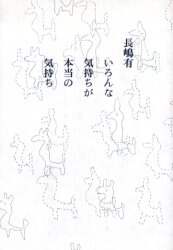 長嶋有
いろんな
気持ちが
本当の
気持ち